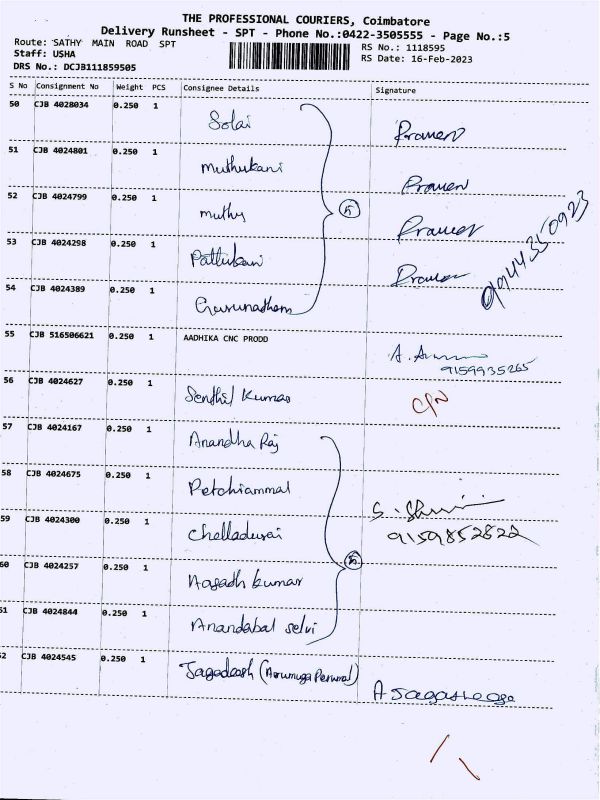 THE PROFESSIONAL COURIERS, Coimbatore
Delivery Runsheet - SPT - Phone No.:0422-3505555 - Page No.:5
Route: SATHY MAIN ROAD SPT
Staff: USHA
DRS No.: DCJB111859505
RS No.: 1118595
RS Date: 16-Feb-2023
S No Consignment No Weight PCS Consignee Details Signature
50 CJB 4028034 0.250 1 Solai Praveen
51 CJB 4024801 0.250 1 muthukani Praveen
52 CJB 4024799 0.250 1 muthu Praveen
53 CJB 4024298 0.250 1 Pattukani Praveen
5
9944350923
54 CJB 4024389 0.250 1 Gurunadham
55 CJB 516506621 0.250 1 AADHIKA CNC PRODD
9159935265
56 CJB 4024627 0.250 1 Senthil Kumar
57 CJB 4024167 0.250 1 Anandha Raj
58 CJB 4024675 0.250 1 Petchiammal
59 CJB 4024300 0.250 1 Chelladurai
9159852822
60 CJB 4024257 0.250 1 kumar
5
51 CJB 4024844 0.250 1 Anandabal selvi
52 CJB 4024545 0.250 1 Jagadeesh (Arumuga Perumal)